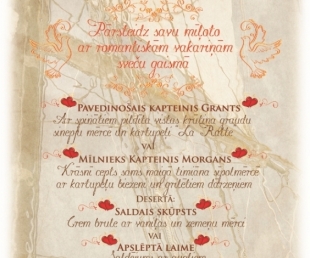 Pārsteidz savu mīļoto
ar romantiskām vakariņām
sveču gaismā
Pavedinošais kapteinis Grants
Ar spinātiem pildīta vistas krūtiņa graudu
sinepju mērcē un kartupeļi La Ratte
vai
Mīlnieks Kapteinis Morgans
Krāsnī cepts sams maigā timiāna sīpolmērcē
ar kartupeļu biezeni un grilētiem dārzeņiem
Desertā:
Saldais skūpsts
Crem brule ar vaniļas un zemeņu mērci
vai
Apslēptā laime